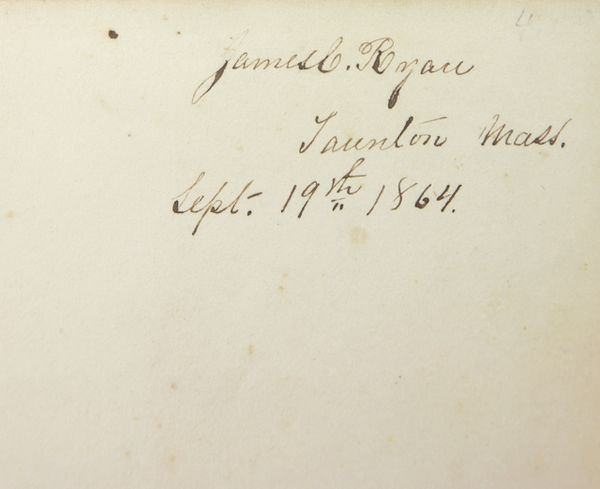 4
James C. Ryan
Taunton Mass.
Sept. 19th 1864.